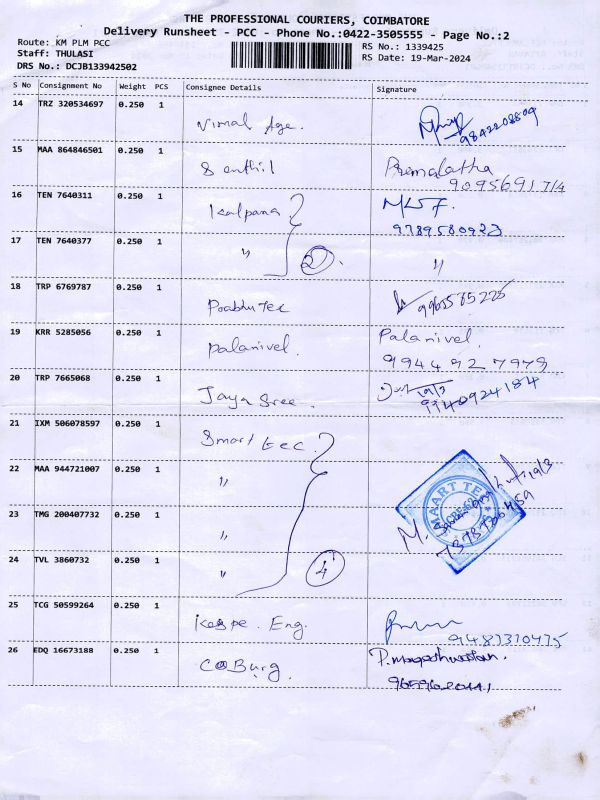 THE PROFESSIONAL COURIERS, COIMBATORE
Delivery Runsheet - PCC - Phone No.:0422-3505555 - Page No.:2
Route: KM PLM PCC
RS No.: 1339425
Staff: THULASI
RS Date: 19-Mar-2024
DRS No.: DCJB133942502
S No Consignment No Weight PCS Consignee Details Signature
14 TRZ 320534697 0.250 1 Nirmal Age. 9842208809
15 MAA 864846501 0.250 1 Senthil Premalatha
9095691714
16 TEN 7640311 0.250 1 Kalpana
9789580923
17 TEN 7640377 0.250 1 〃 2 〃
18 TRP 6769787 0.250 1 Prabhu Tec 9965585225
19 KRR 5285056 0.250 1 Palanivel. Palanivel.
9944927979
20 TRP 7665068 0.250 1 Jaya Sree. 19/3
9940924184
21 IXM 506078597 0.250 1 Smart tec
22 MAA 944721007 0.250 1 〃
23 TMG 200407732 0.250 1 〃
24 TVL 3860732 0.250 1 〃 4
25 TCG 50599264 0.250 1 Eng.
26 EDQ 16673188 0.250 1 CoBurg.